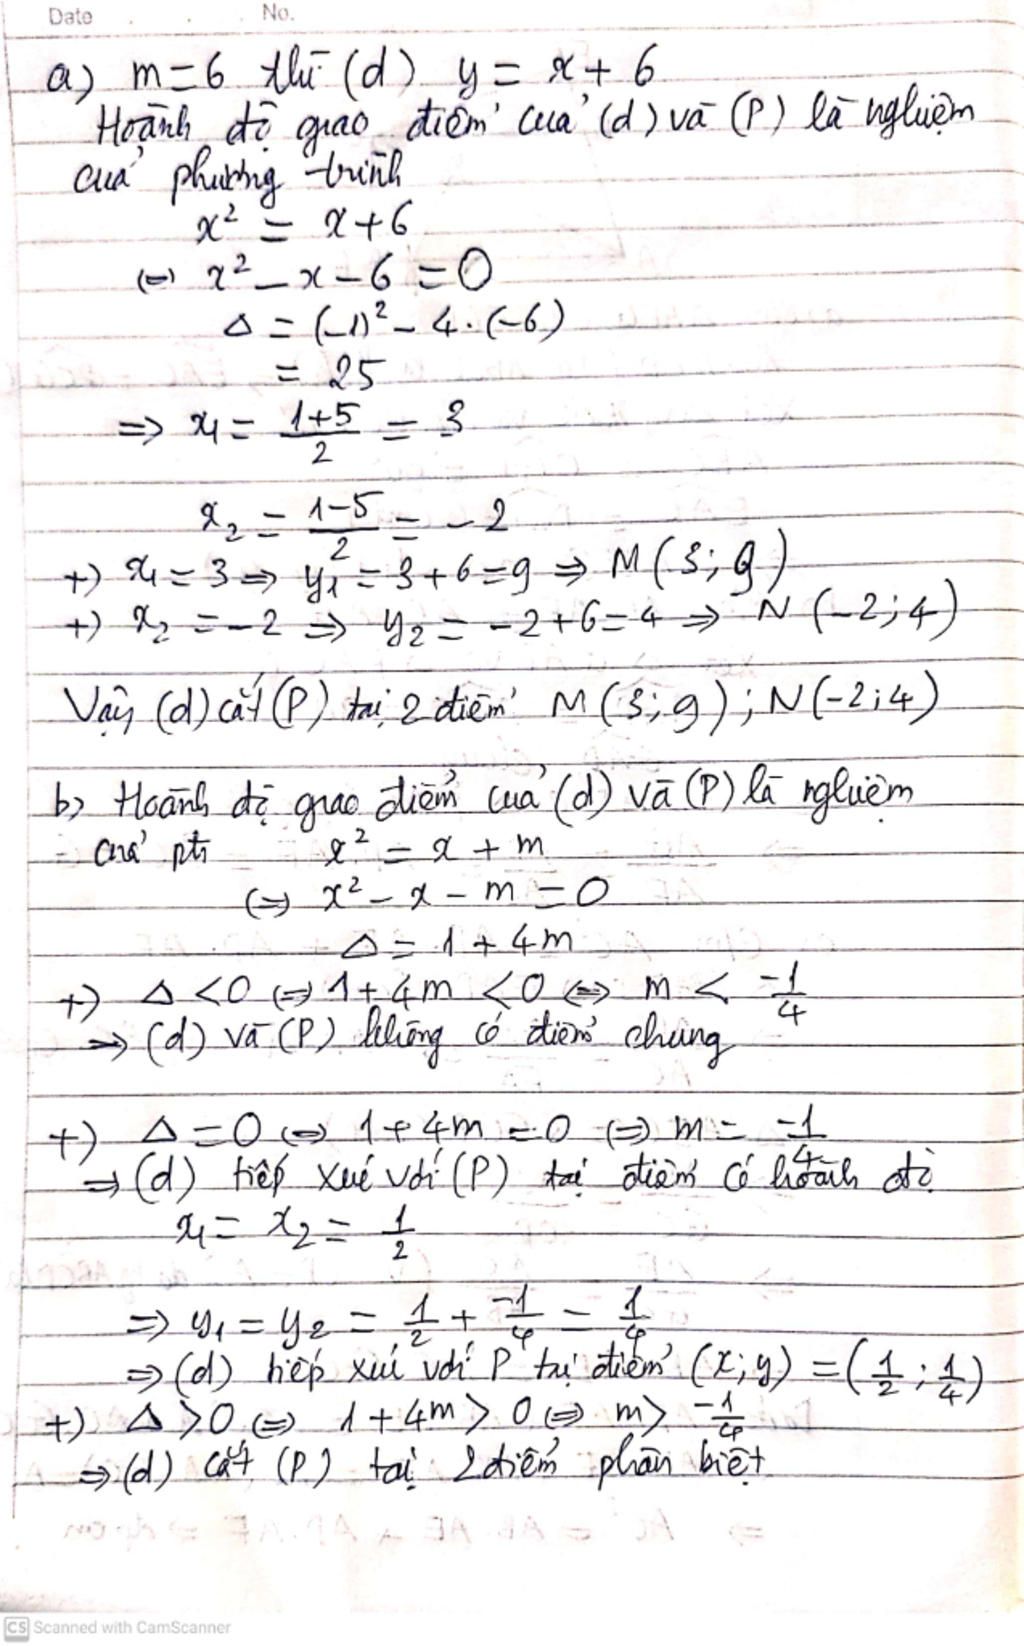 Date No.
a) m=6 thì (d) y = x + 6
Hoành độ giao điểm của (d) và (P) là nghiệm
của phương trình
x² = x+6
⇔ x² - x - 6 = 0
Δ = (-1)² - 4.(-6)
= 25
⇒ x₁ = (1+5)/2 = 3
x₂ = (1-5)/2 = -2
+) x₁ = 3 ⇒ y₁ = 3+6=9 ⇒ M(3;9)
+) x₂ = -2 ⇒ y₂ = -2+6=4 ⇒ N(-2;4)
Vậy (d) cắt (P) tại 2 điểm M(3;9); N(-2;4)
b) Hoành độ giao điểm của (d) và (P) là nghiệm
của ptr x² = x + m
⇔ x² - x - m = 0
Δ = 1 + 4m
+) Δ < 0 ⇔ 1 + 4m < 0 ⇔ m < -1/4
⇒ (d) và (P) không có điểm chung
+) Δ = 0 ⇔ 1 + 4m = 0 ⇔ m = -1/4
⇒ (d) tiếp xúc với (P) tại điểm có hoành độ
x₁ = x₂ = 1/2
⇒ y₁ = y₂ = 1/2 + -1/4 = 1/4
⇒ (d) tiếp xúc với P tại điểm (x;y) = (1/2; 1/4)
+) Δ > 0 ⇔ 1 + 4m > 0 ⇔ m > -1/4
⇒ (d) cắt (P) tại 2 điểm phân biệt
CS Scanned with CamScanner